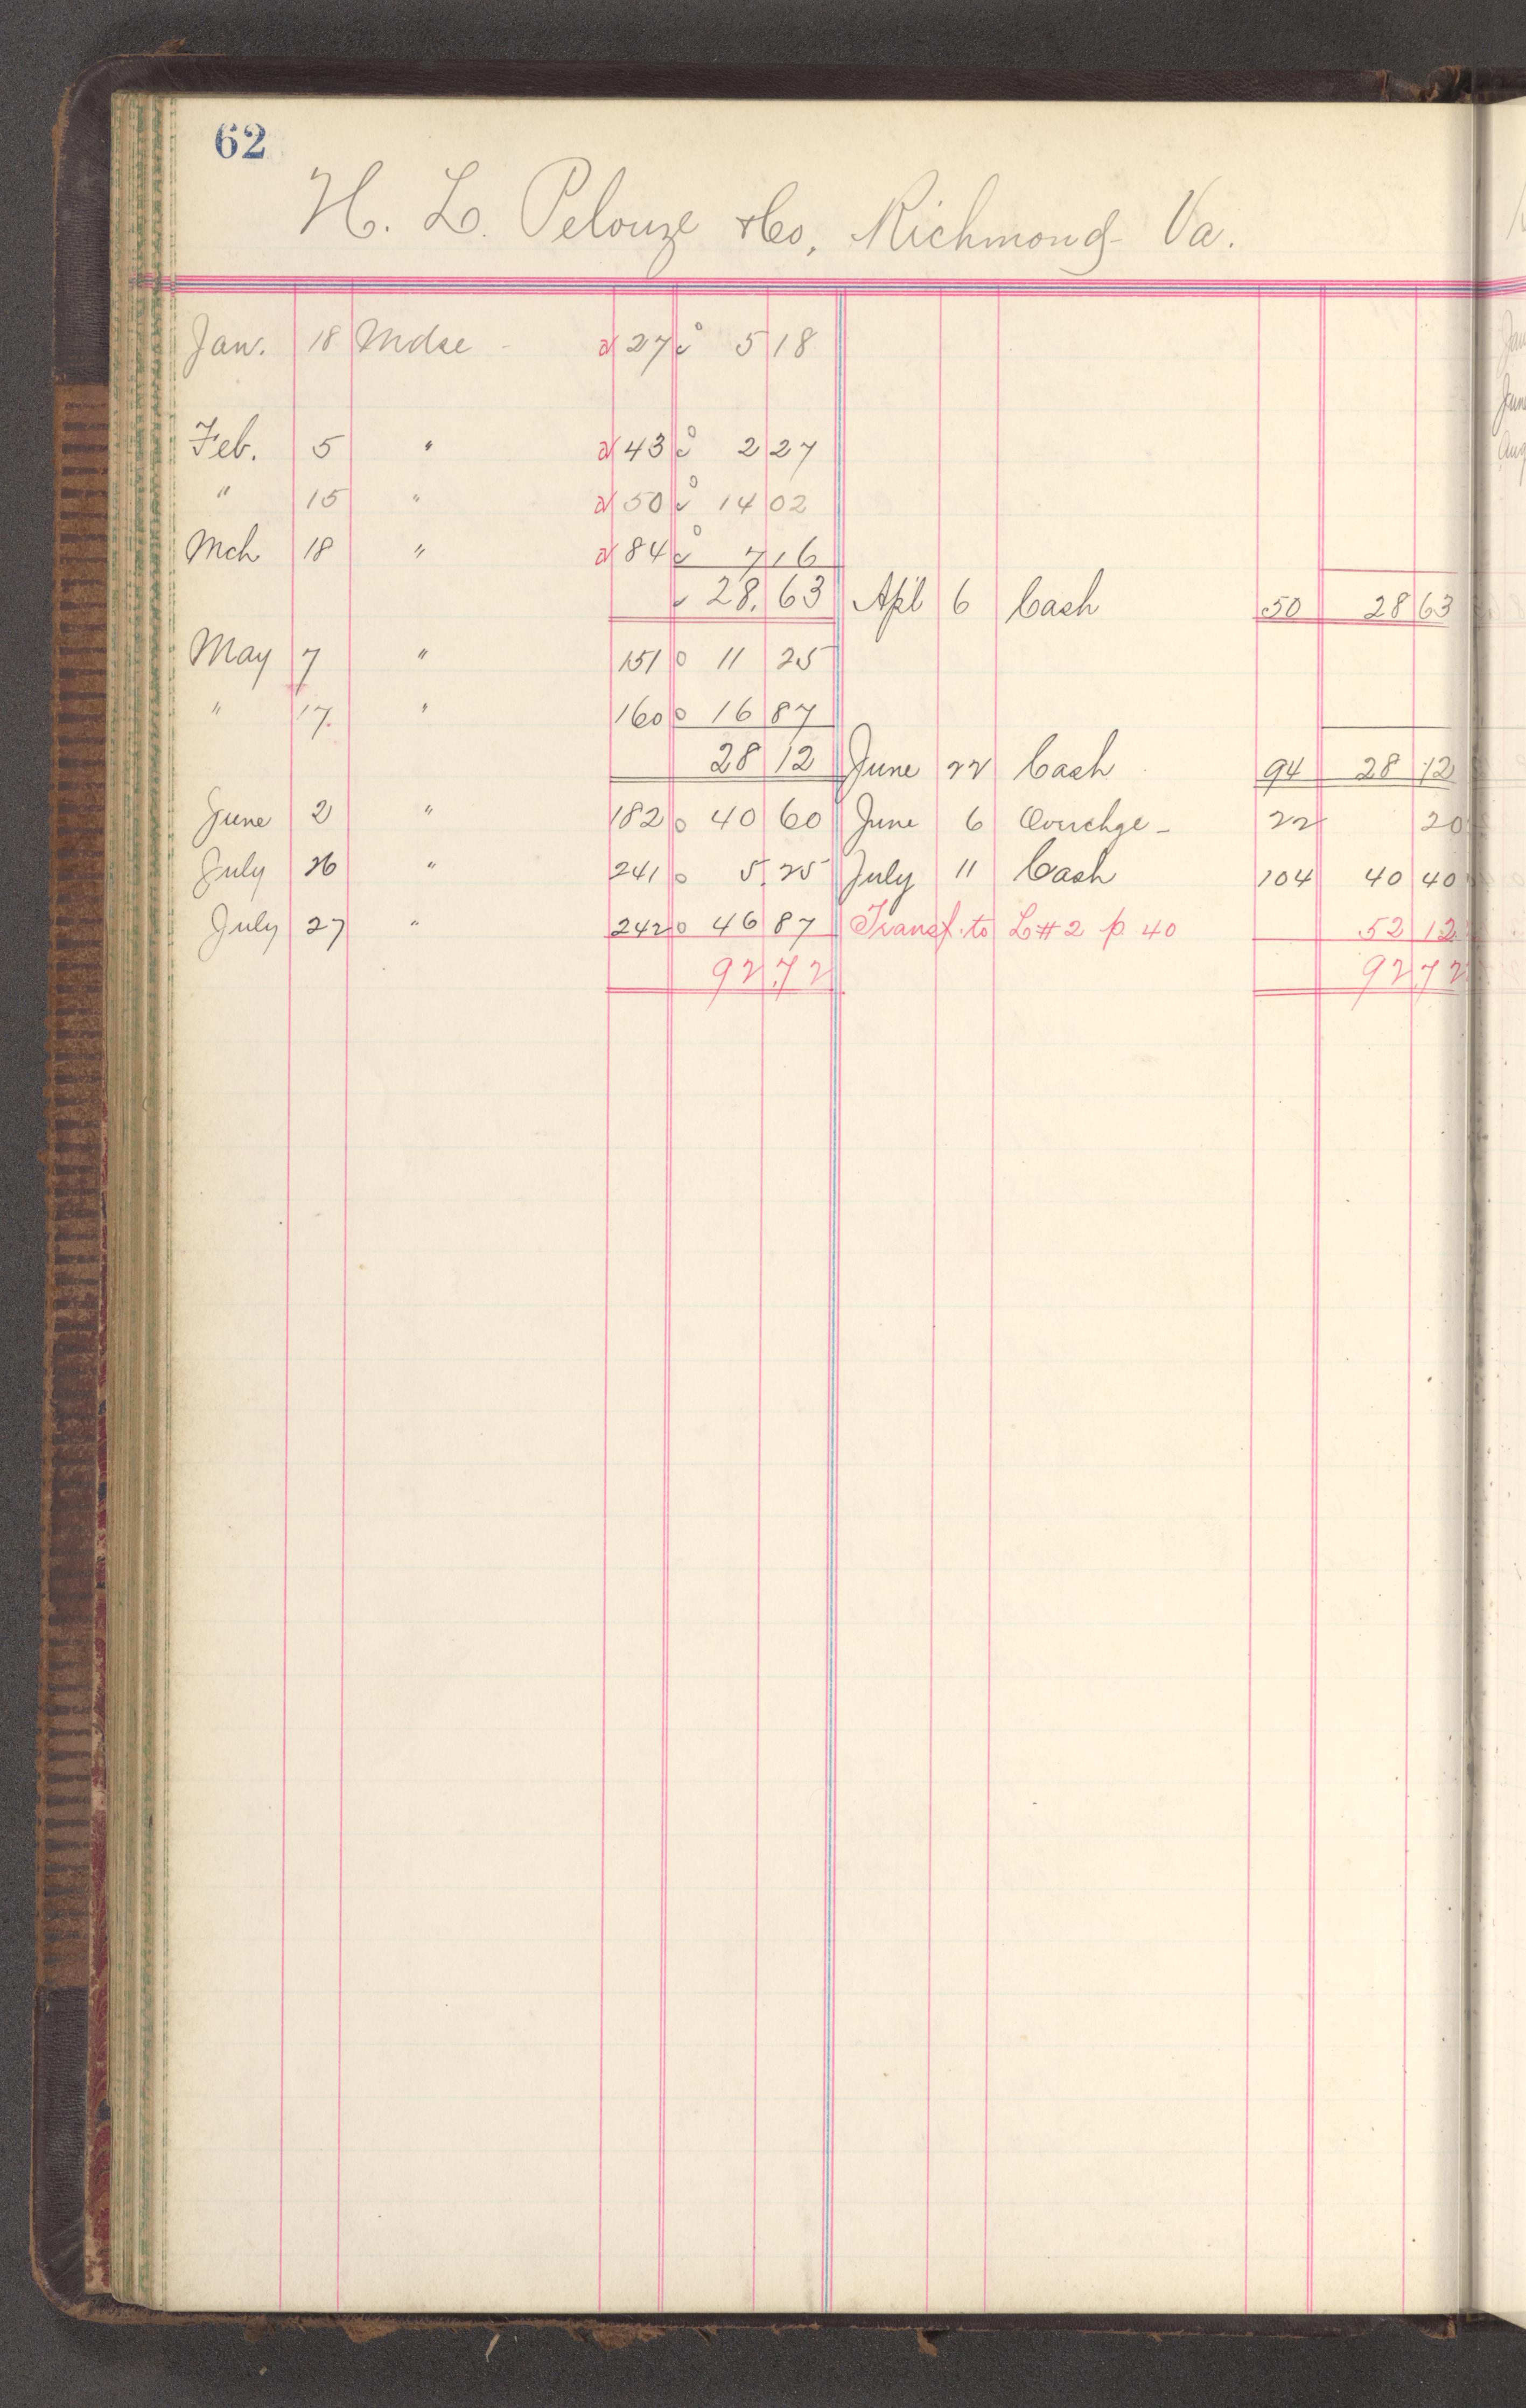 62
H. L. Pelouze & Co, Richmond Va.
Jan. 18 Mdse - 27 5 18
Feb. 5 " 43 2 27
" 15 " 50 14 02
Mch 18 " 84 7 16
28.63 Apl 6 Cash 50 28 63
May 7 " 151 11 25
" 17. " 160 16 87
28 12 June 22 Cash 94 28 12
June 2 " 182 40 60 June 6 Overchge - 22 20
July 26 " 241 5.25 July 11 Cash 104 40 40
July 27 " 242 46 87 Transf. to L#2 p. 40 52 12
92.72 92 72
Jan
June
Aug